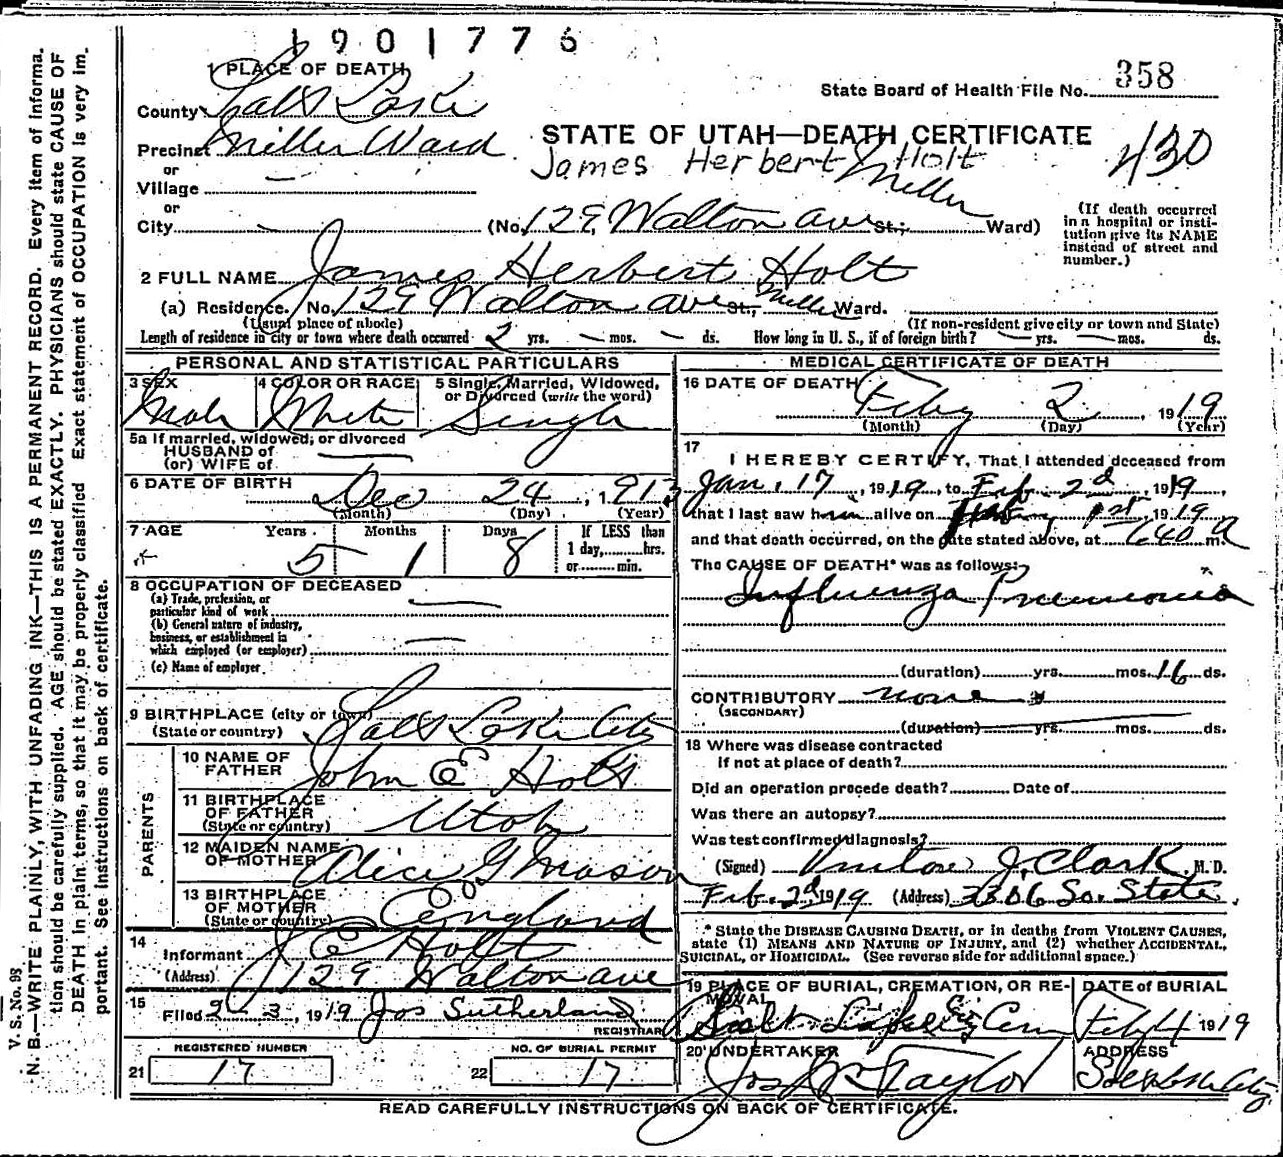 1901776
1 PLACE OF DEATH
State Board of Health File No. 358
County Salt Lake
STATE OF UTAH—DEATH CERTIFICATE
430
Precinct Miller Ward
James Herbert Holt
or
Village
Miller
or
City (No. 129 Walton ave St.; Ward)
(If death occurred
in a hospital or insti-
tution give its NAME
instead of street and
number.)
2 FULL NAME James Herbert Holt
(a) Residence. No. 129 Walton ave St., Miller Ward.
(Usual place of abode) (If non-resident give city or town and State)
Length of residence in city or town where death occurred 2 yrs. — mos. — ds. How long in U. S., if of foreign birth? — yrs. — mos. ds.
PERSONAL AND STATISTICAL PARTICULARS
3 SEX 4 COLOR OR RACE 5 Single, Married, Widowed,
or Divorced (write the word)
Male White Single
5a If married, widowed, or divorced
HUSBAND of
(or) WIFE of
6 DATE OF BIRTH Dec 24, 1913
(Month) (Day) (Year)
7 AGE Years Months Days If LESS than
1 day, hrs.
or min.
5 1 8
8 OCCUPATION OF DECEASED
(a) Trade, profession, or
particular kind of work
(b) General nature of industry,
business, or establishment in
which employed (or employer)
(c) Name of employer
9 BIRTHPLACE (city or town) Salt Lake City
(State or country)
PARENTS
10 NAME OF
FATHER John E Holt
11 BIRTHPLACE
OF FATHER Utah
(State or country)
12 MAIDEN NAME
OF MOTHER Alice G Mason
13 BIRTHPLACE
OF MOTHER England
(State or country)
14
Informant J E Holt
(Address) 129 Walton ave
15
Filed 2-3, 1919 Jos Sutherland
REGISTRAR
REGISTERED NUMBER NO. OF BURIAL PERMIT
21 17 22 17
MEDICAL CERTIFICATE OF DEATH
16 DATE OF DEATH
Feby 2, 1919
(Month) (Day) (Year)
17
I HEREBY CERTIFY, That I attended deceased from
Jan. 17, 1919, to Feb. 2d, 1919,
that I last saw him alive on 1st, 1919,
and that death occurred, on the date stated above, at 640 m. A
The CAUSE OF DEATH* was as follows:
Influenza Pneumonia
(duration) yrs. mos. 16 ds.
CONTRIBUTORY none
(SECONDARY)
(duration) yrs. mos. ds.
18 Where was disease contracted
if not at place of death?
Did an operation precede death? Date of
Was there an autopsy?
Was test confirmed diagnosis?
(Signed) J. Clark M. D.
Feb. 2d, 1919 (Address) 3306 So. State
* State the DISEASE CAUSING DEATH, or in deaths from VIOLENT CAUSES,
state (1) MEANS AND NATURE OF INJURY, and (2) whether ACCIDENTAL,
SUICIDAL, or HOMICIDAL. (See reverse side for additional space.)
19 PLACE OF BURIAL, CREMATION, OR RE-
MOVAL
DATE of BURIAL
Salt Lake City Cem Feby 4 1919
20 UNDERTAKER ADDRESS
Taylor City
READ CAREFULLY INSTRUCTIONS ON BACK OF CERTIFICATE.
V. S. No. 98
N. B.—WRITE PLAINLY, WITH UNFADING INK—THIS IS A PERMANENT RECORD. Every item of informa-
tion should be carefully supplied. AGE should be stated EXACTLY. PHYSICIANS should state CAUSE OF
DEATH in plain terms, so that it may be properly classified. Exact statement of OCCUPATION is very im-
portant. See instructions on back of certificate.